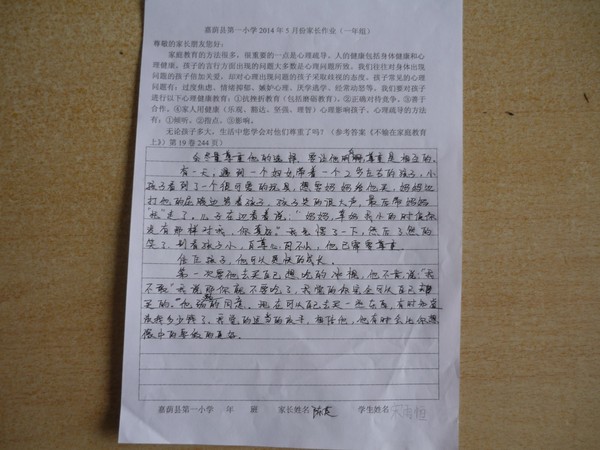 嘉荫县第一小学 2014 年 5 月份家长作业（一年组）
尊敬的家长朋友您好：
家庭教育的方法很多，很重要的一点是心理疏导。人的健康包括身体健康和心
理健康。孩子的言行方面出现的问题大多数是心理问题所致。我们往往对身体出现
问题的孩子倍加关爱，却对心理出现问题的孩子采取歧视的态度。孩子常见的心理
问题有：过度焦虑、情绪抑郁、嫉妒心理、厌学逃学、经常动怒等。我们要对孩子
进行以下心理健康教育：①抗挫折教育（包括磨砺教育）。②正确对待竞争。③善于
合作。④家人用健康（乐观、豁达、坚强、理智）心理影响孩子。心理疏导的方法
有：①倾听。②指点。③影响。
无论孩子多大，生活中您学会对他们尊重了吗？（参考答案《不输在家庭教育
上》）第 19 卷 244 页）
会尽量尊重他的选择，要让他明白尊重是相互的。
有一天，遇到一个妇女带着一个2岁左右的孩子，小
孩子看到了一个很可爱的玩具，想要妈妈给他买，妈妈边
打他的 边骂着孩子，孩子哭的很大声，最后带妈妈
走了。儿子在边看着说："妈妈，幸好我小的时候你
没有那样对我，你真好"我先愣了一下，然后了然的
笑了，别看孩子小，自尊心可不小，他已需要尊重。
信任孩子，他可以更快的成长。
第一次要他去买自己想吃的冰棍，他不敢说："我
不敢"我说那你就不要吃了，我觉得你完全可以自己
买的。"他 的同意。现在可以自己去买一些东西，有时知道
找多少钱了。我觉的适当的放手，相信他，也有时会比你想
像中的要做的更好。
嘉荫县第一小学 年 班 家长姓名 陈 学生姓名